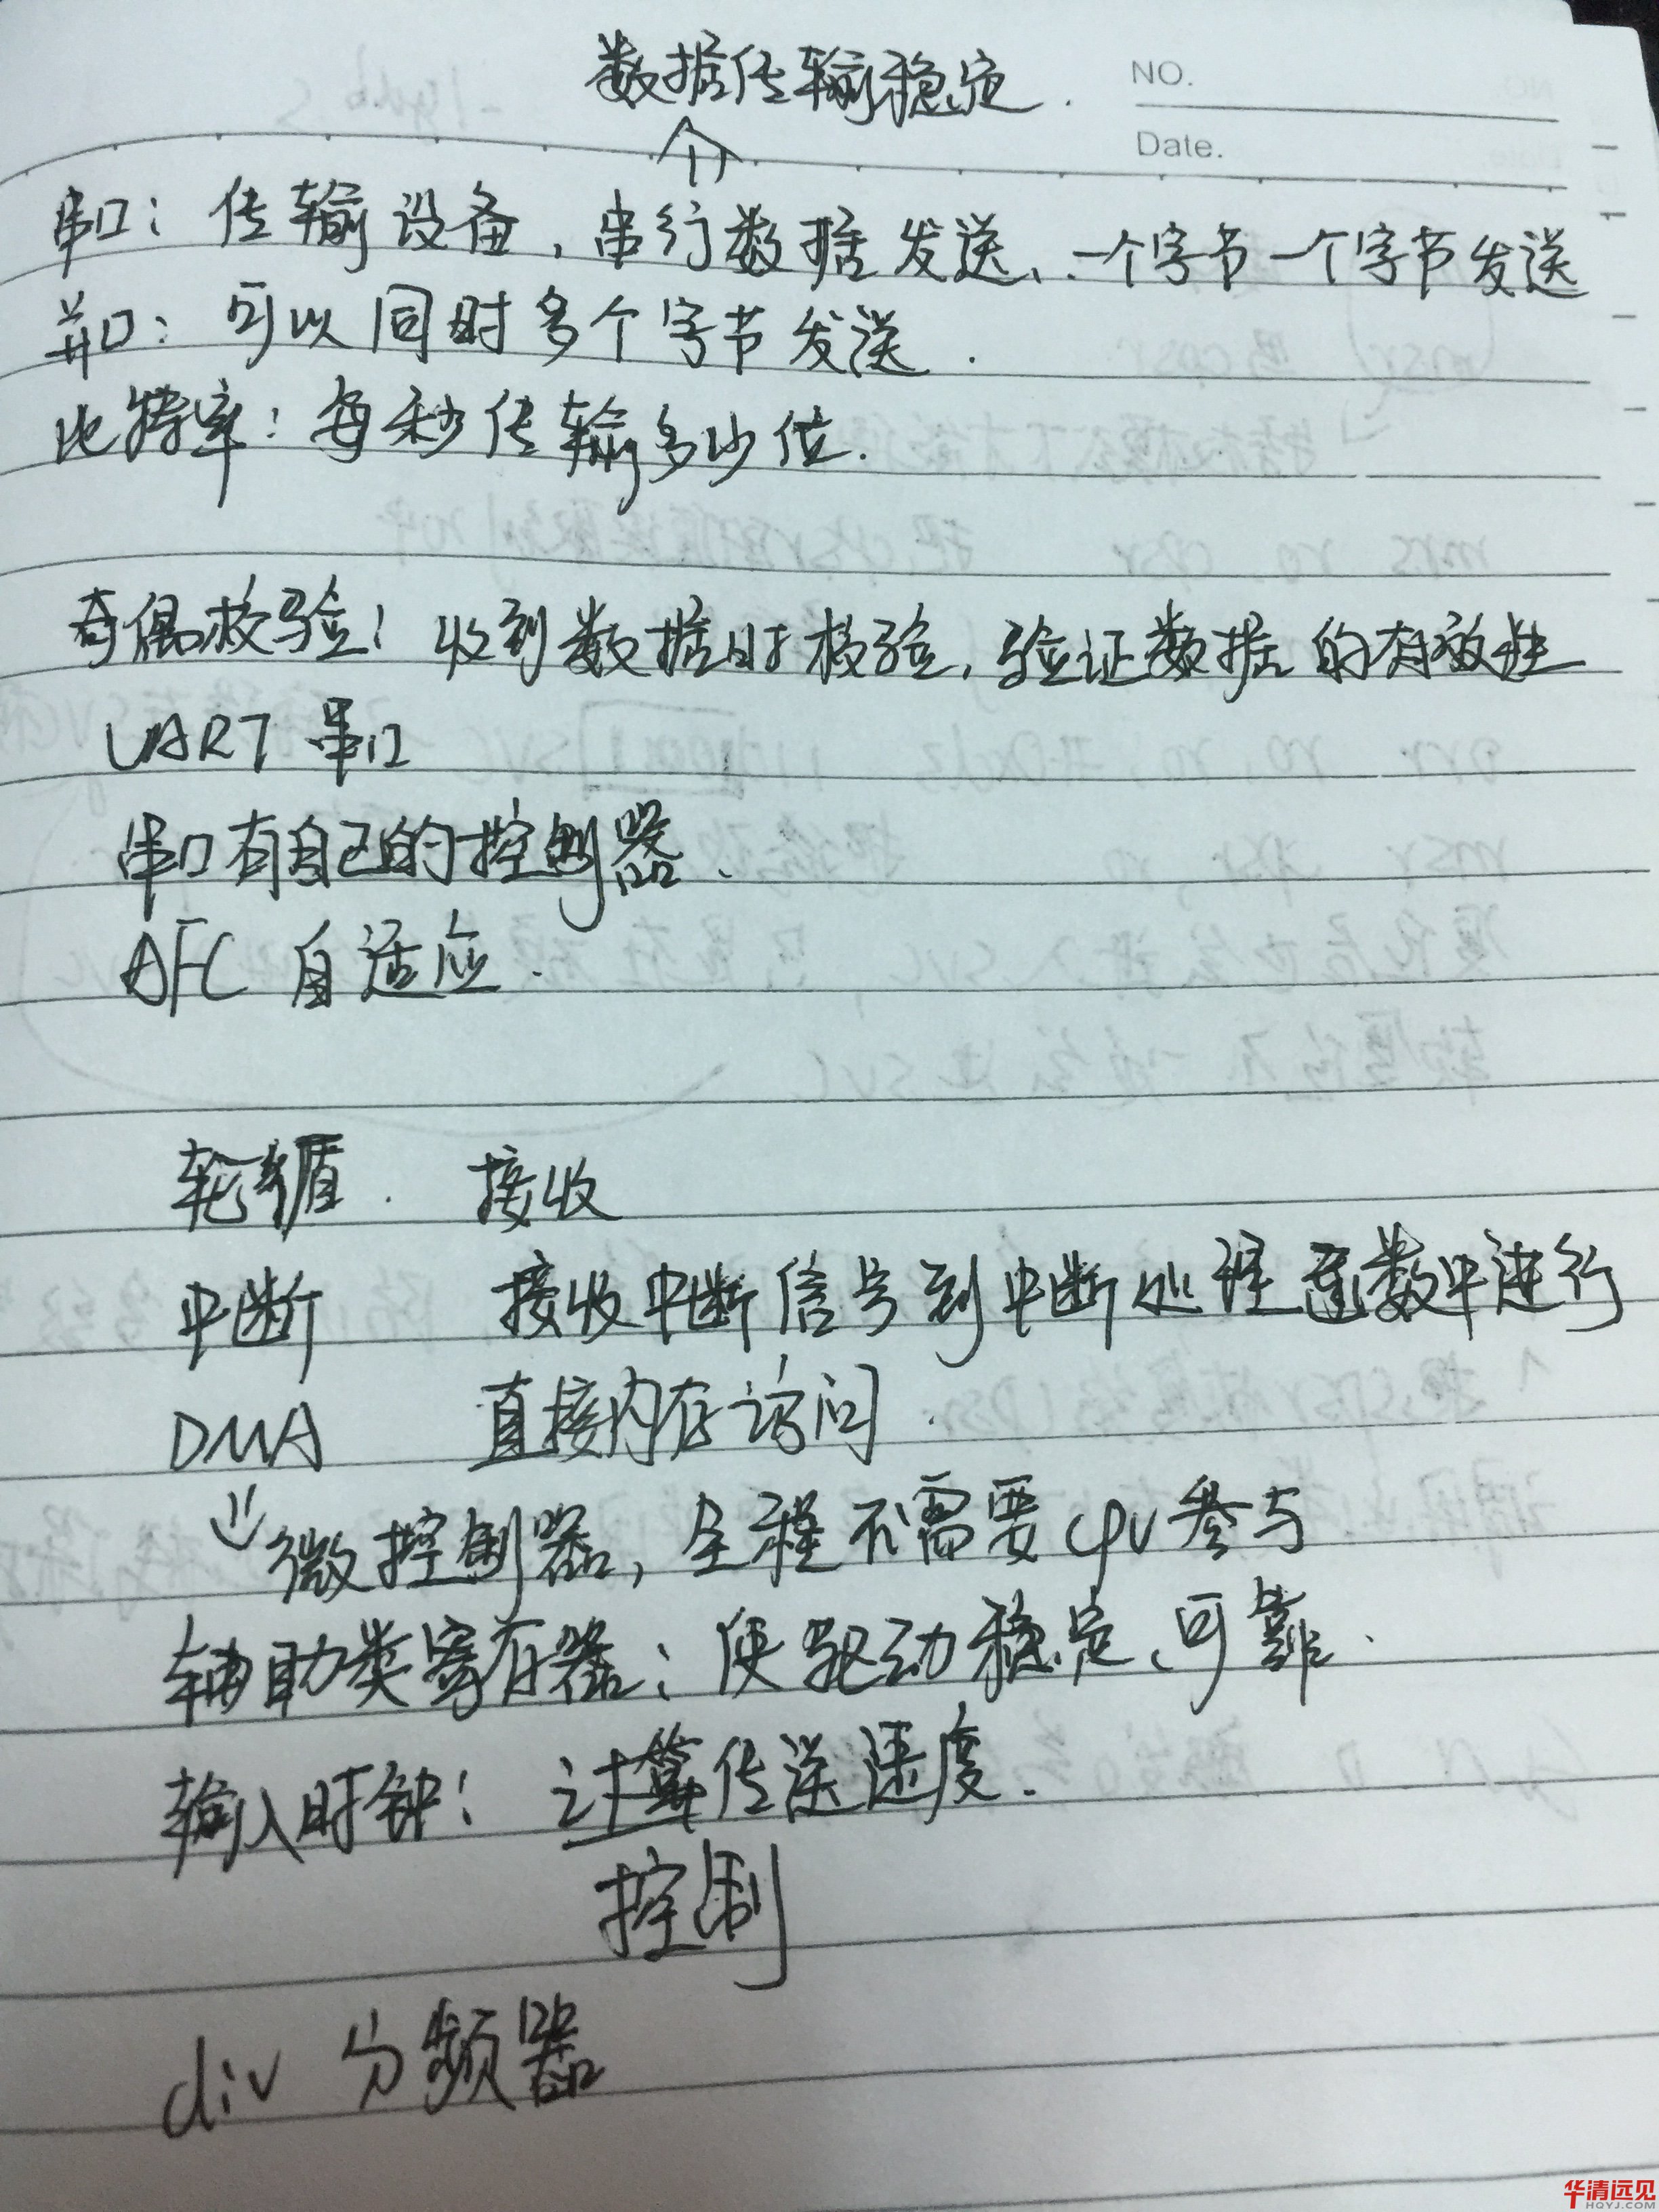 数据传输稳定.
NO.
Date.
串口: 传输设备, 串行数据发送、一个字节一个字节发送
并口: 可以同时多个字节发送.
比特率: 每秒传输多少位.
奇偶校验: 收到数据时校验, 验证数据的有效性
UART 串口
串口有自己的控制器、
AFC 自适应.
轮循. 接收
中断 接收中断信号到中断处理函数中进行
DMA 直接内存访问.
微控制器, 全程不需要cpu参与
辅助类寄存器: 使驱动稳定、可靠.
输入时钟: 计算传送速度.
控制
div 分频器
华清远见
HQYJ.COM